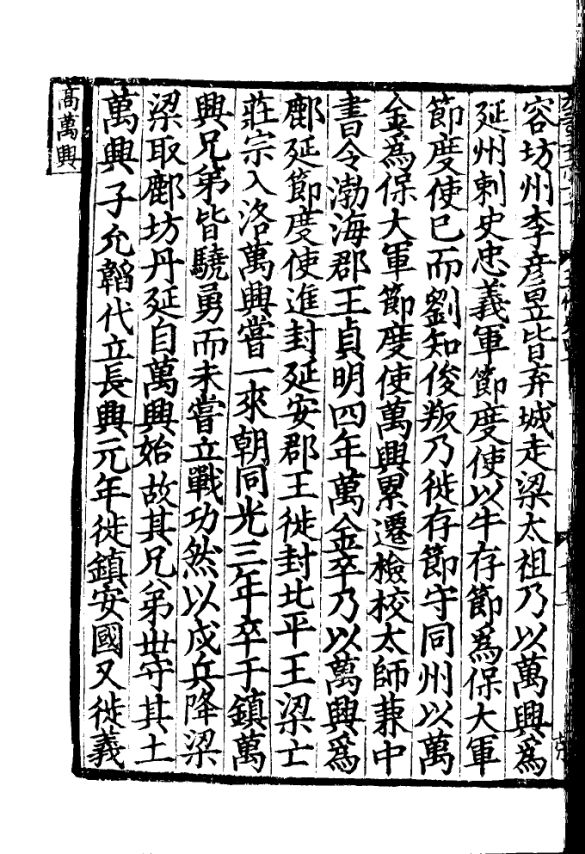 容坊州李彥昱皆弃城走梁太祖乃以萬興爲
延州刺史忠義軍節度使以牛存節爲保大軍
節度使已而劉知俊叛乃徙存節守同州以萬
金爲保大軍節度使萬興累遷檢校太師兼中
書令渤海郡王貞明四年萬金卒乃以萬興爲
鄜延節度使進封延安郡王徙封北平王梁亡
莊宗入洛萬興嘗一來朝同光三年卒于鎮萬
興兄弟皆驍勇而未嘗立戰功然以戍兵降梁
梁取鄜坊丹延自萬興始故其兄弟世守其土
萬興子允韜代立長興元年徙鎮安國又徙義
高萬興